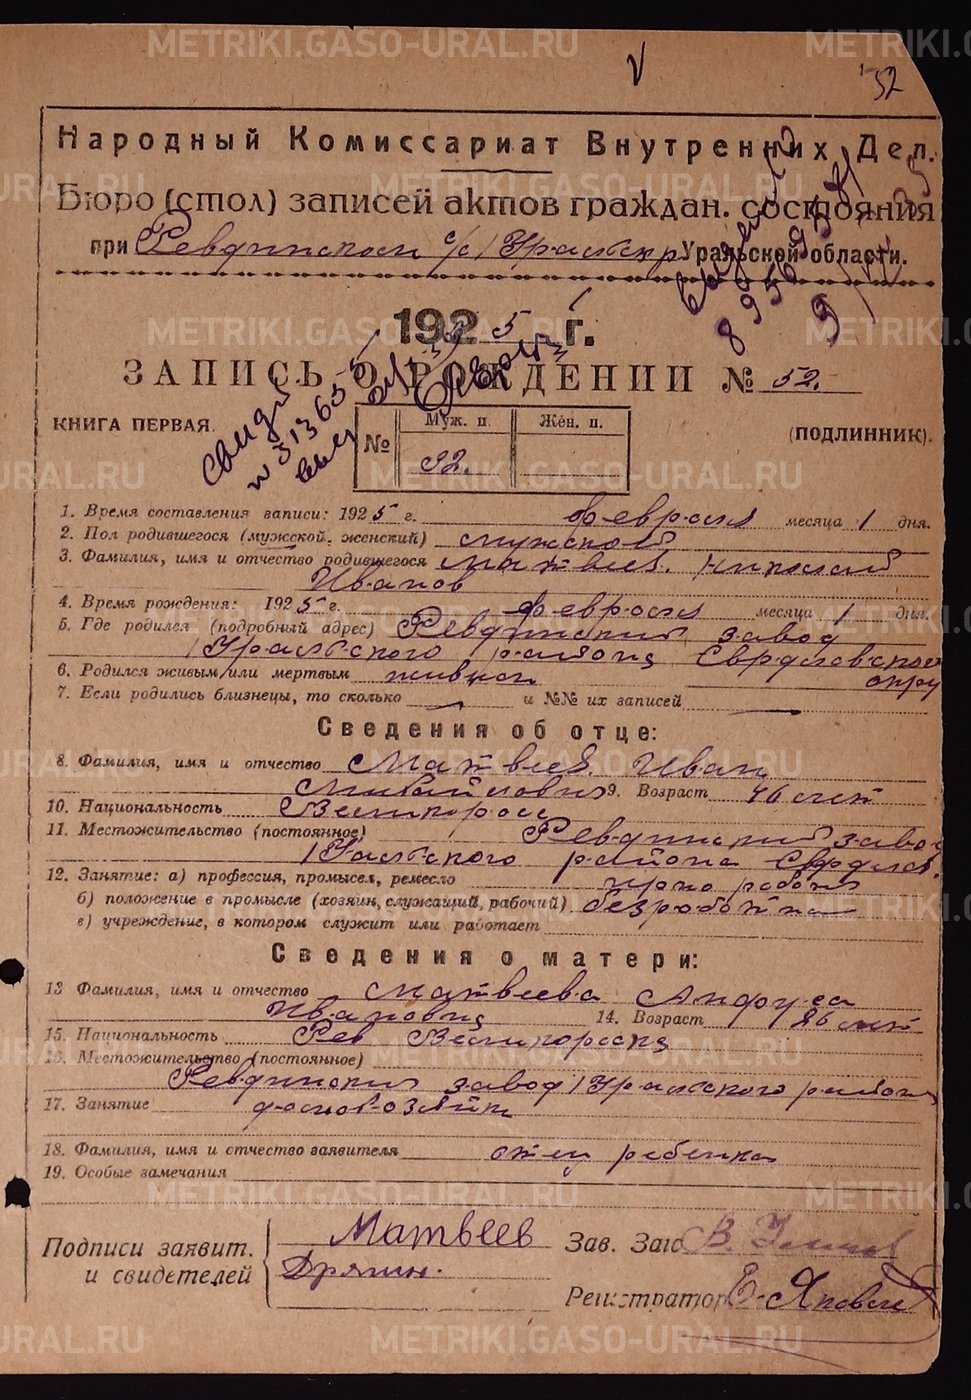 METRIKI.GASO-URAL.RU
52
Народный Комиссариат Внутренних Дел.
Бюро (стол) записей актов граждан. состояния
при Ревдинском с/с Уральской области.
1925 г.
ЗАПИСЬ О РОЖДЕНИИ № 52.
КНИГА ПЕРВАЯ.
№ Муж. п. Жен. п.
(ПОДЛИННИК).
32.
1. Время составления записи: 1925 г. февраля месяца 1 дня.
2. Пол родившегося (мужской, женский) мужской
3. Фамилия, имя и отчество родившегося Матвеев Николай
Иванов
4. Время рождения: 1925 г. февраля месяца 1 дня.
5. Где родился (подробный адрес) Ревдинский завод
Уральского района
6. Родился живым или мертвым живым
7. Если родились близнецы, то сколько и №№ их записей
Сведения об отце:
8. Фамилия, имя и отчество Матвеев Иван
Михайлович 9. Возраст 46 лет
10. Национальность Великоросс
11. Местожительство (постоянное) Ревдинский завод
района
12. Занятие: а) профессия, промысел, ремесло
б) положение в промысле (хозяин, служащий, рабочий) безработный
в) учреждение, в котором служит или работает
Сведения о матери:
13 Фамилия, имя и отчество Матвеева
Ивановна 14. Возраст лет
15. Национальность Великоросска
16. Местожительство (постоянное)
Ревдинский завод Уральского района
17. Занятие домохозяйка
18. Фамилия, имя и отчество заявителя отец ребенка
19. Особые замечания
Подписи заявит. и свидетелей
Матвеев
Дрягин.
Зав. Загс В.
Регистратор Е.